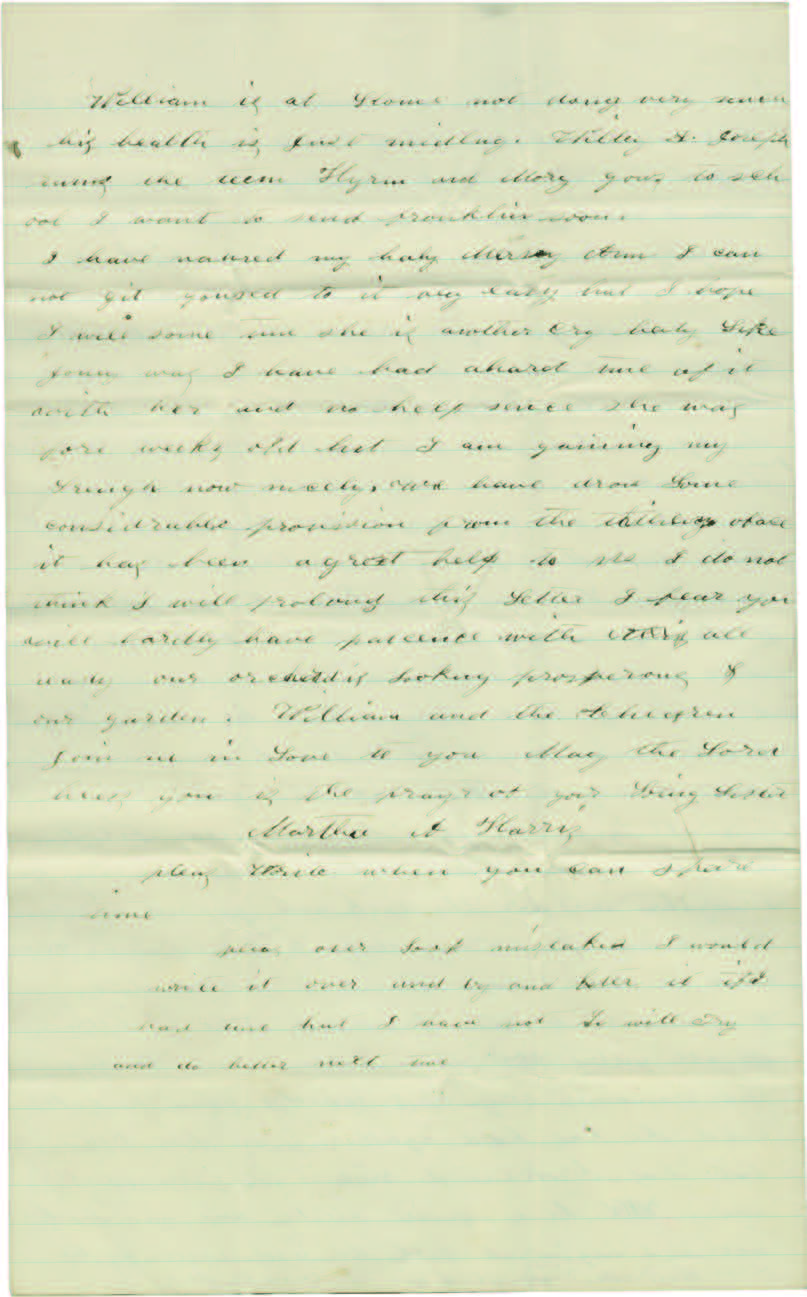 William is at Home not doing very much
his health is just midling. Willey A. Joseph
runs the teem Hyrm and Mary gous to sch
ool I want to send franklin soon.
I have named my baby Mercy Ann I can
not git yoused to it very easy but I hope
I will some time she is another cry baby Like
was I have had ahard time of it
with her and no help sence she was
fore weeks old but I am gaining my
now nicely. we have dron Some
considrable provision from the tithing
it has been agreat help to us I do not
think I will prolong this Letter I fear you
will hardly have patience with this all
ready our orcheld is Looking prosperous &
our garden. William and the
Join me in Love to you May the Lord
bless you is the prayr of your Loving Sister
Martha A Harris
pleas Write when you can spare
time
pleas over Look mistakes I would
write it over and try and better it if I
had time but I have not So will try
and do better next time